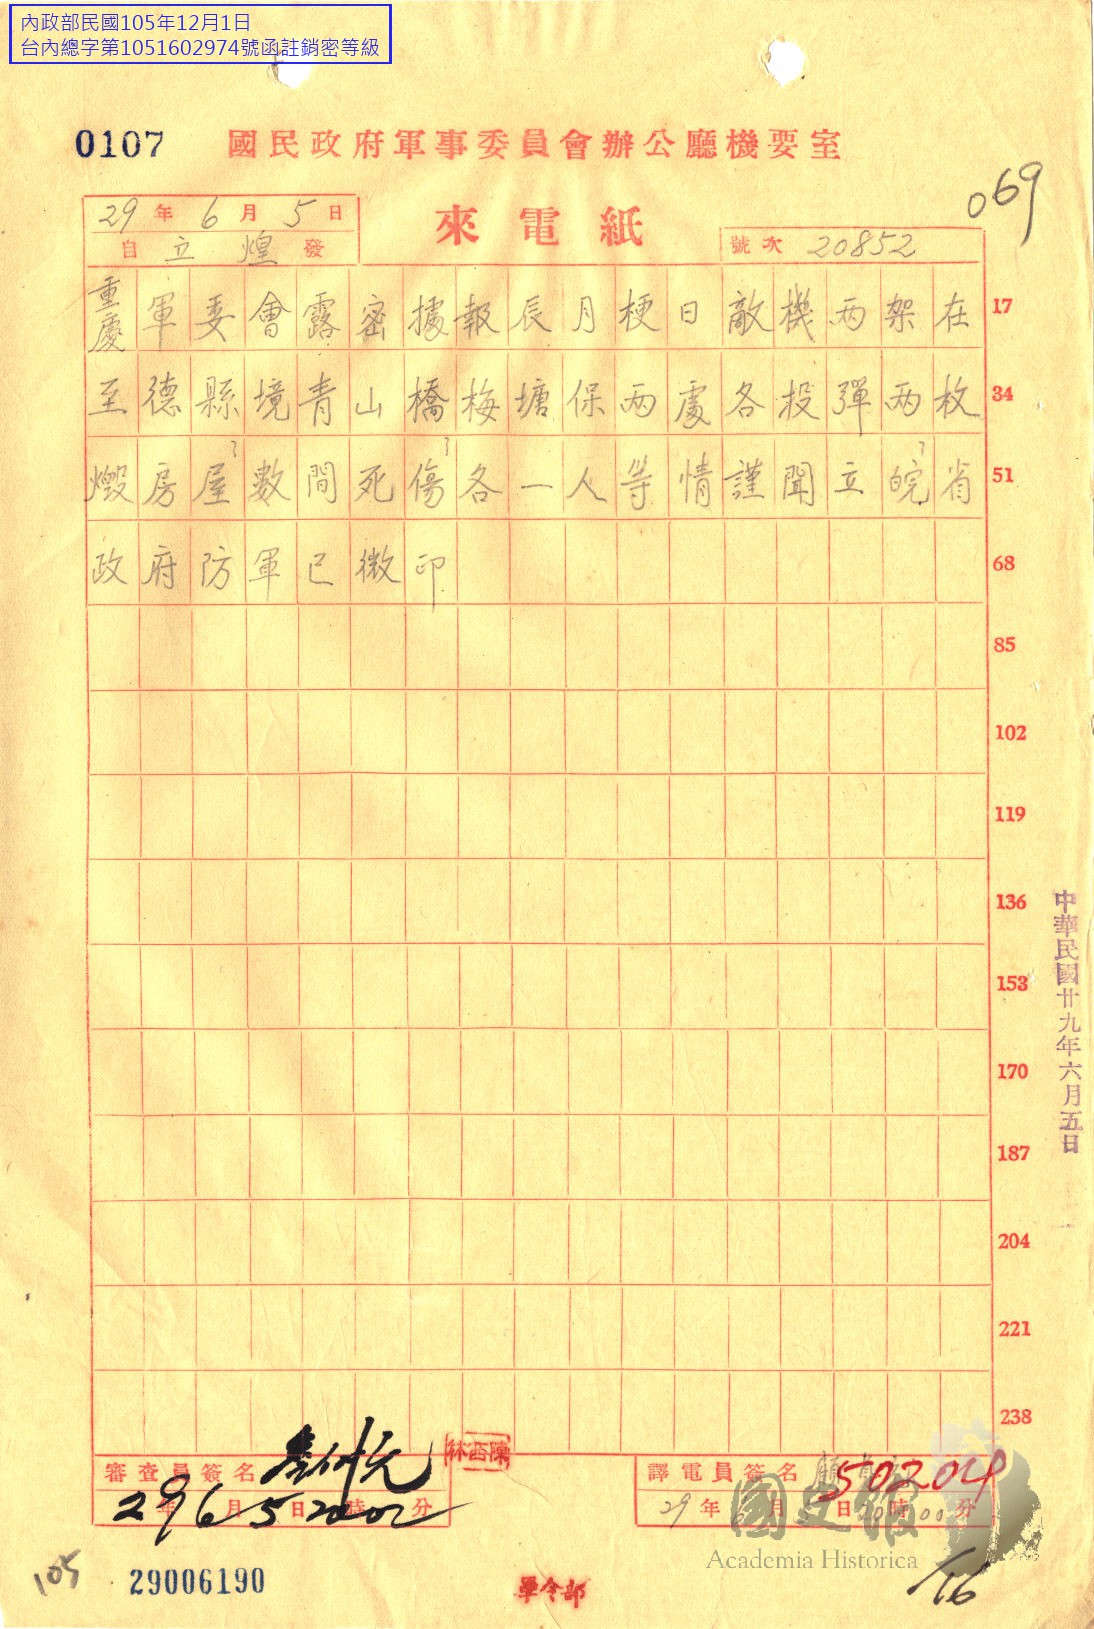 內政部民國105年12月1日
台內總字第1051602974號函註銷密等級
0107
國民政府軍事委員會辦公廳機要室
069
29年6月5日
來電紙
自立煌發
號次 20852
重慶軍委會露密據報辰月梗日敵機兩架在 17
至德縣境青山橋梅塘保兩處各投彈兩枚 34
燬房屋?數間死傷?各一人等情謹聞立皖?省 51
政府防軍已微印 68
85
102
119
136
153
170
187
204
221
238
中華民國廿九年六月五日
審查員簽名
陳西林
29年6月5日2002分
譯電員簽名
50204
29年6月5日20時00分
國史館
Academia Historica
105
29006190
軍令部
16